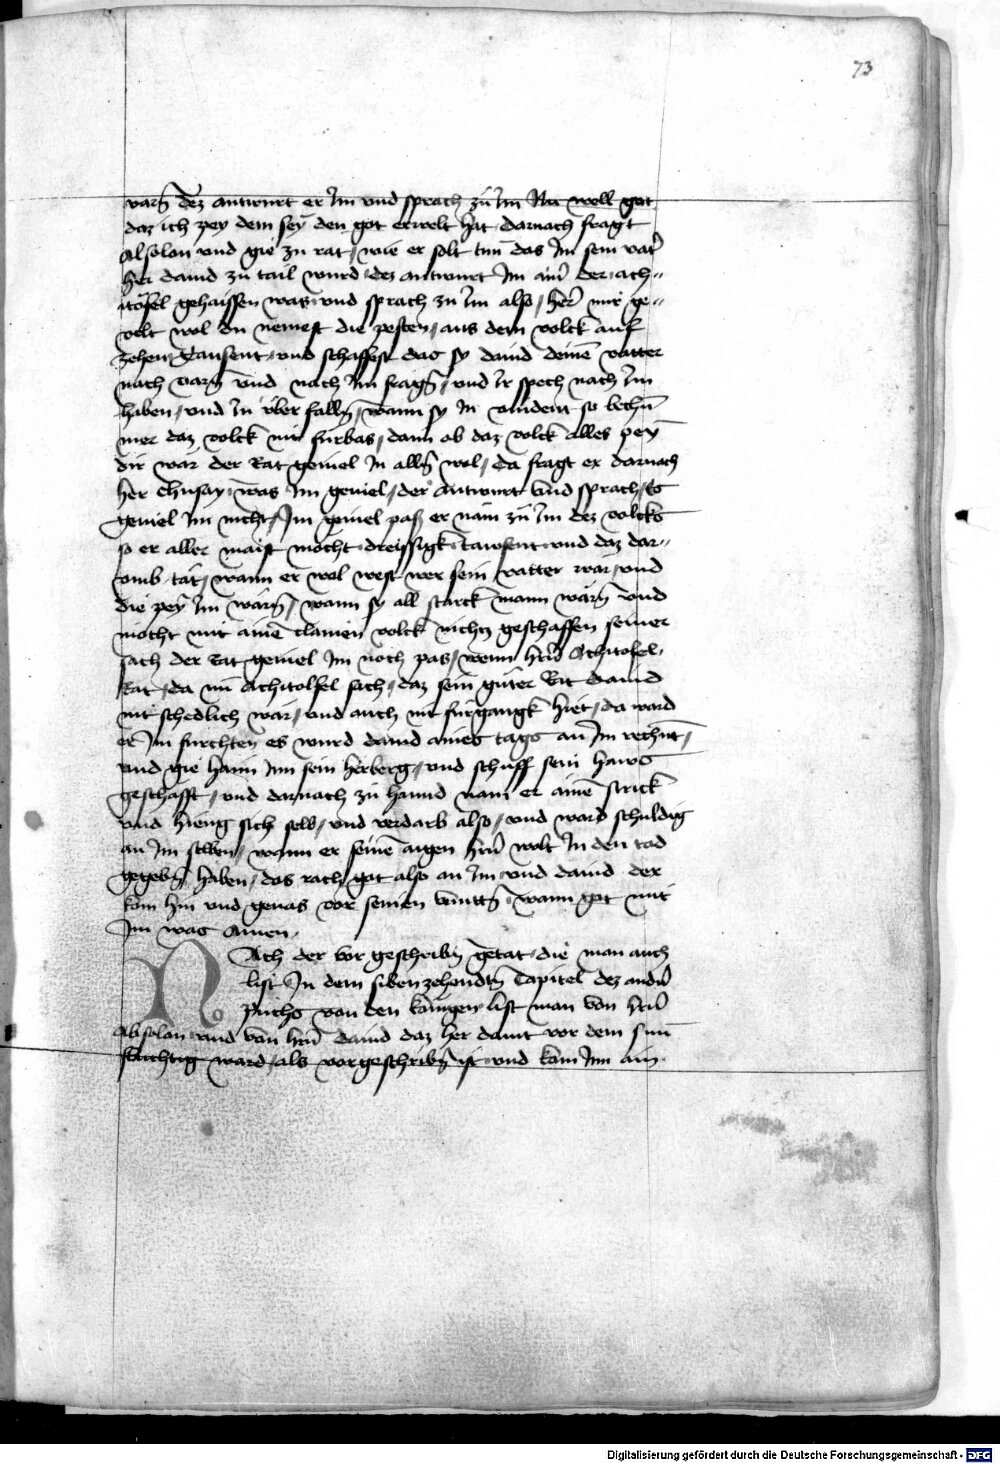 73
varñ dez antwurt er Im vnd sprach zu Im Nu well got
daz ich pey dem sey den got erwelt hat darnach fragt
Absolon vnd gie zu rat wie er solt tun das Im sein vatˀ
her dauid zu tail wurd dez antwurt Im ainˀ der ach-
itofel gehaissen was vnd sprach zu Im also herˀ mir ge-
velt wol du nemest die pesten aus dem volck auf
zehen Tausent vnd schaffest das sy dauid deinē vatter
nach varñ vnd nach Im fragñ vnd Ir spech nach Im
haben vnd In vber fallñ wann sy In vindent so bechū
mer daz volck nit furbas dann ob daz volck alles pey
dir war der Rat geuiel In allñ wol da fragt er darnach
her Chusay was Im geuiel der antwurt vnd sprach Es
geuiel Im nicht Im geuiel pas er nam zu Im dez volcks
so er aller maist mocht dreissigk tawsent vnd daz dar-
vmb tat wann er wol west wer sein vatter war vnd
die pey Im warñ wann sy all starck mann warñ vnd
mocht mit ainē clainen volck nichtz geschaffen seiner
sach der Rat geuiel Im noch pas wenn herˀ Achitofel
Rat da nu Achitolfel sach daz sein guter Rat Dauid
nit schedlich war vnd auch nit furgangk hiet da ward
er Im furchten es wurd dauid aines tags an Im rechñt
vnd gie haim Inn sein herberg vnd schuff sein haws
geschafft vnd darnach zu hannd nam er ainē strick
vnd hieng sich selb vnd verdarb also vnd ward schuldig
an Im selben wann er seinē aigen herˀ wolt In den tod
gegebñ haben das rach got also an Im vnd dauid der
kam hin vnd genas vor seinen veinttñ wann got mit
Im was Amen
NAch der vor geschribñ getat die man auch
list In dem sibenzehendtñ Capitel dez andˀñ
puchs von den kunigen list man von herˀ
Absolon vnd von herˀ dauid daz her dauit vor dem sun
fluchtig ward als vorgeschribñ ist vnd kam Inn ain
Digitalisierung gefördert durch die Deutsche Forschungsgemeinschaft - DFG